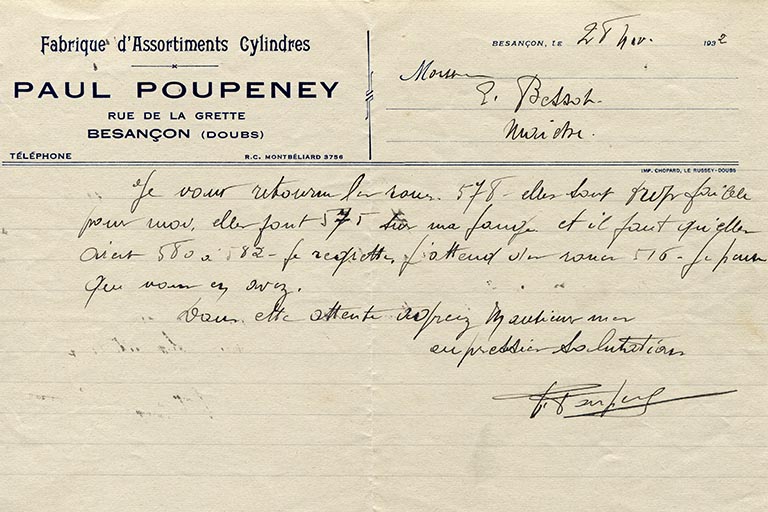 Fabrique d'Assortiments Cylindres
PAUL POUPENEY
RUE DE LA GRETTE
BESANÇON (DOUBS)
TÉLÉPHONE
R.C. MONTBÉLIARD 3756
BESANÇON, LE 28 Nov. 1932
Monsieur
E. Bessot
Morteau
IMP. CHOPARD, LE RUSSEY-DOUBS
Je vous retourne les roues 578 - elles sont trop faibles
pour moi, elles font 575 sur ma jauge et il faut qu'elles
aient 580 à 582 - Je regrette, j'attend des roues 516 - Je pense
que vous en avez.
Dans cette attente agréez Monsieur mes
empressées Salutations